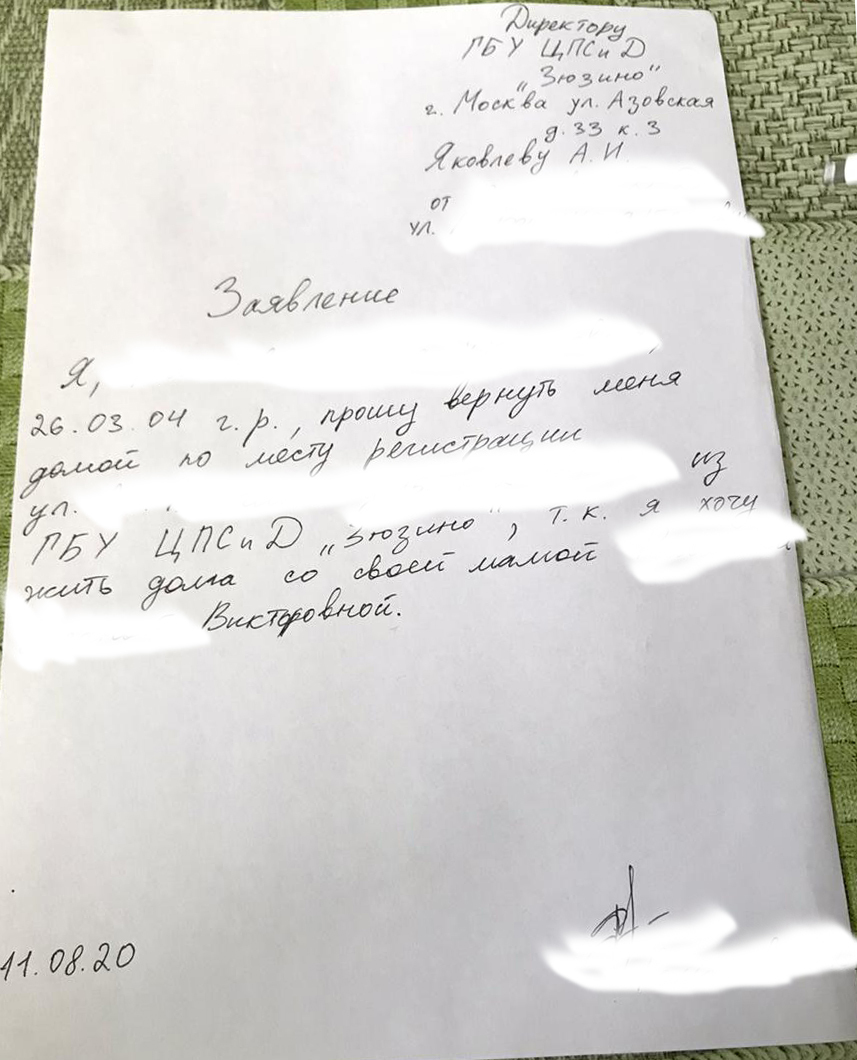 Директору
ГБУ ЦПСиД
"Зюзино"
г. Москва ул. Азовская
д. 33 к. 3
Яковлеву А. И.
от
ул.
Заявление
Я,
26.03.04 г.р., прошу вернуть меня
домой по месту регистрации
ул. из
ГБУ ЦПСиД "Зюзино", т.к. я хочу
жить дома со своей мамой
Викторовной.
11.08.20